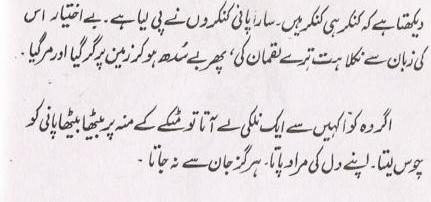 دیکھتا ہے کہ کنکر ہی کنکر ہیں۔ سارا پانی کنکروں نے پی لیا ہے۔ بے اختیار اس
کی زبان سے نکلا ہت ترے لقمان کی‘ پھر بے سُدھ ہو کر زمین پر گر گیا اور مر گیا۔
اگر وہ کوّا کہیں سے ایک نلکی لے آتا تو مٹکے کے منہ پر بیٹھا بیٹھا پانی کو
چوس لیتا۔ اپنے دل کی مراد پاتا۔ ہرگز جان سے نہ جاتا۔